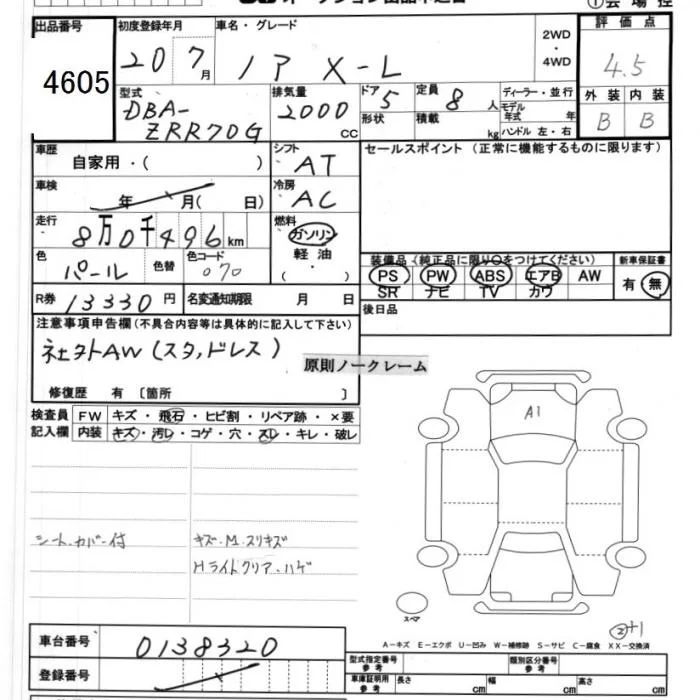 出品番号 初度登録年月 車名・グレード 2WD 評価点
4605 20 7月 ノア X-L ・ 4.5
4WD
型式 排気量 ドア 定員 ディーラー・並行 外装 内装
DBA- 2000 5 8人 モデル年式 年 B B
ZRR70G cc 形状 積載 kg ハンドル 左・右
車歴 シフト セールスポイント (正常に機能するものに限ります)
自家用・( ) AT
車検 冷房
年 月( 日) AC
走行 燃料
8万0千496km ガソリン
色 色替 色コード 軽油 装備品(純正品に限り○をつけてください) 新車保証書
パール 070 ・( ) PS PW ABS エアB AW 有・無
SR ナビ TV カワ
R券 13330円 名変通知期限 月 日 後日品
注意事項申告欄(不具合内容等は具体的に記入して下さい)
社外AW(スタッドレス)
原則ノークレーム
修復歴 有〔箇所 〕
検査員 FW キズ・飛石・ヒビ割・リペア跡・×要
記入欄 内装 キズ・汚レ・コゲ・穴・スレ・キレ・破レ
A1
シートカバー付 キズ・M.スリキズ
Hライトクリアハゲ
スペア
②+1
A-キズ E-エクボ U-凹み W-補修跡 S-サビ C-腐食 XX-交換済
車台番号 0138320
登録番号
型式指定番号 参考 類別区分番号 参考
車庫証明用 参考 長さ cm 幅 cm 高さ cm